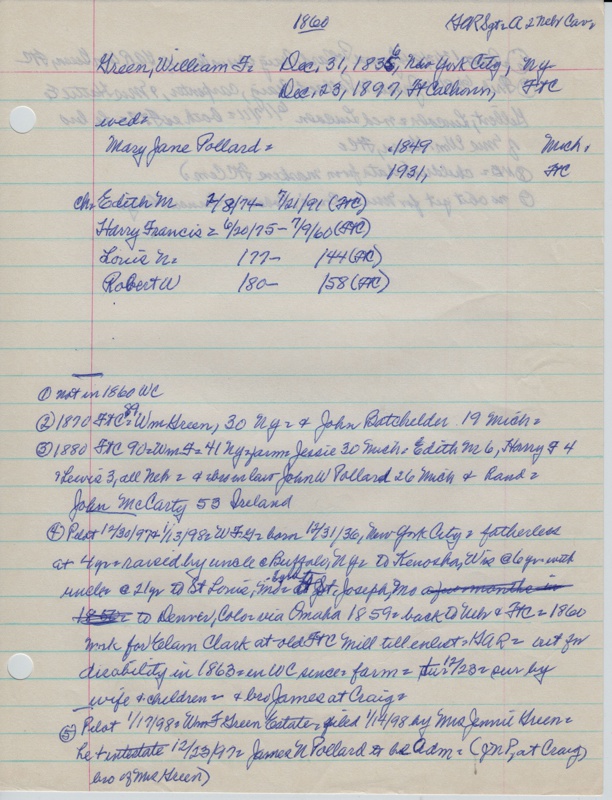 1860 GAR Sgt= A 2 Nebr Cav=
Green, William F= Dec, 31, 1835,6 New York City, Ny
Dec, 23, 1897, Ft Calhoun, FtC
wed=
Mary Jane Pollard = .1849 Mich,
1931, FtC
ch= Edith M 2/8/74- 7/21/91 (FtC)
Harry Francis = 6/20/75- 7/9/60 (FtC)
Louis N= 177- 144 (FtC)
Robert W 180- 158 (FtC)
① not in 1860 WC
② 1870 FtC 89= Wm Green, 30 Ny= & John Batchelder 19 Mich=
③ 1880 FtC 90= Wm F= 41 Ny= farm= Jessie 30 Mich= Edith M 6, Harry F 4
Lewis 3, all Neb= & bro en law John W Pollard 26 Mich & hand=
John McCarty 53 Ireland
④ Pilot 12/30/97= 1/13/98= W F G= born 12/31/36, New York City = fatherless
at 4 yr= raised by uncle @ Buffalo, Ny= to Kenosha, Wisc @ 6 yr= with
uncle= @ 21 yr to St Louis, Mo= to St. Joseph, Mo a few months in
1858= to Denver, Colo= via Omaha 1859= back to Nebr & FtC= 1860
work for Elam Clark at old FtC Mill till enlist= GAR= out for
disability in 1863= en WC since= farm= 12/23= sur by
wife & children= & bro James at Craig=
⑤ Pilot 1/17/98= Wm F Green Estate= filed 1/14/98 by Mrs Jennie Green=
he + intestate 12/23/97= James N Pollard to be Adm= (JNP, at Craig,
bro of Mrs Green)